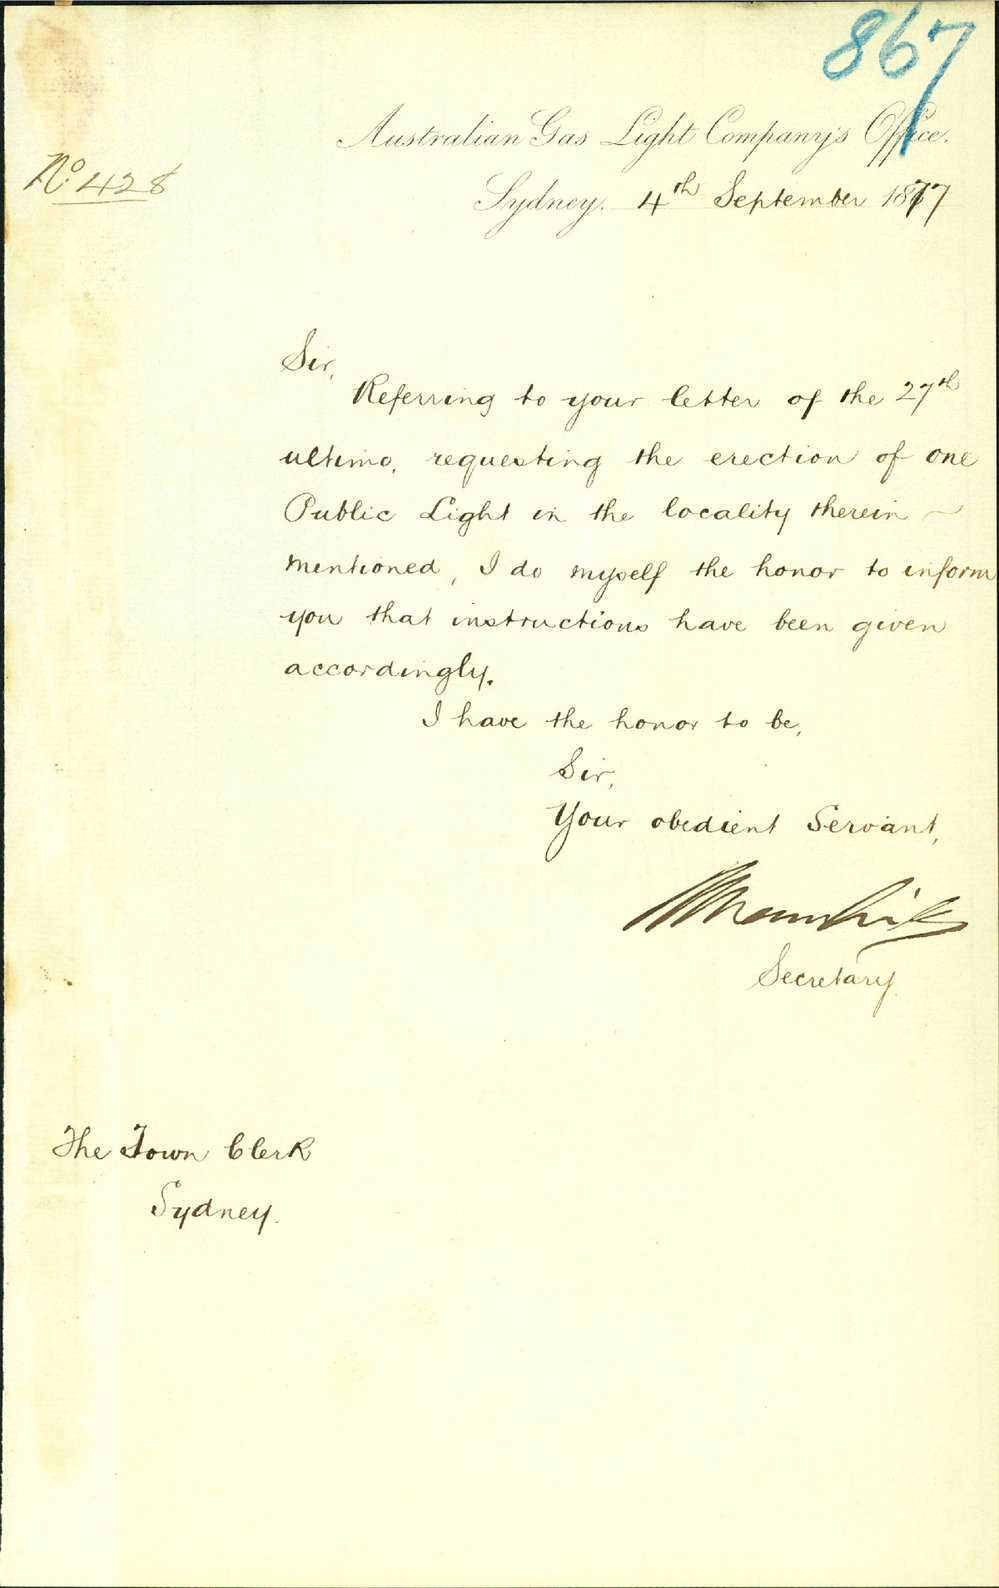 867
Australian Gas Light Company's Office.
No. 428
Sydney. 4th September 1877
Sir,
Referring to your letter of the 27th
ultimo, requesting the erection of one
Public Light in the locality therein ~
mentioned, I do myself the honor to inform
you that instructions have been given
accordingly.
I have the honor to be,
Sir,
Your obedient Servant,
Secretary
The Town Clerk
Sydney.